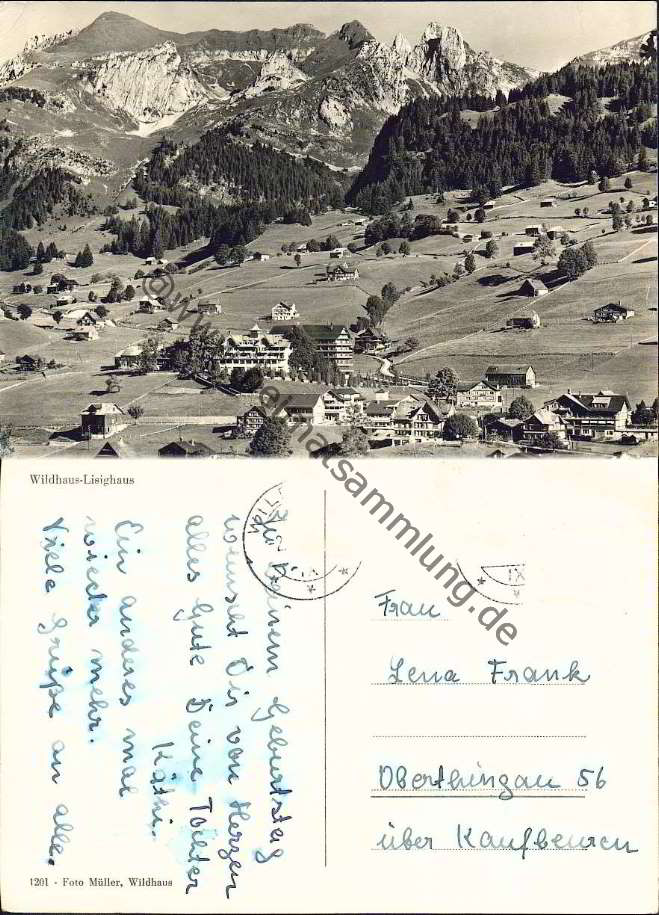 Wildhaus-Lisighaus
Zu Deinem Geburtstag
wünscht Dir von Herzen
alles Gute Deine Tochter
Käthi.
Ein anderes mal
wieder mehr.
Viele Grüße an alle.
Frau
Lena Frank
Oberthingau 56
über Kaufbeuren
1201 - Foto Müller, Wildhaus
IX